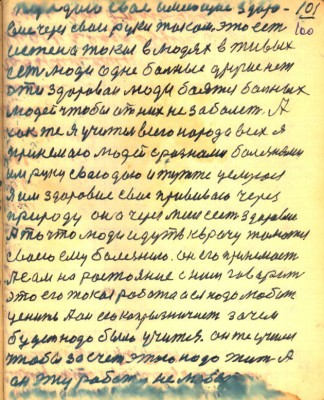 101
передаю свае имеющие здоро-
100
вие через свои руки током. это ест
истена токи в людях в живых
ест люди одне болные другие нет
эти здороваи люди баятся болных
людей чтобы от них не заболет. А
как же я учител всего народа всех я
принемаю людей с разными болезнями
им руку свою даю и тутже
я им здоровие свае прививаю через
природу она через мин ест здоровие
А то что люди идуть к врачу
своею ему болезнию. он его принемает
А сам на растояние с ним гаварит
это его такая работа а ея надо любит
ценит А он зачем
будет надо было учится. он же учился
чтобы за счет этого надо жит А
он эту работу не любит